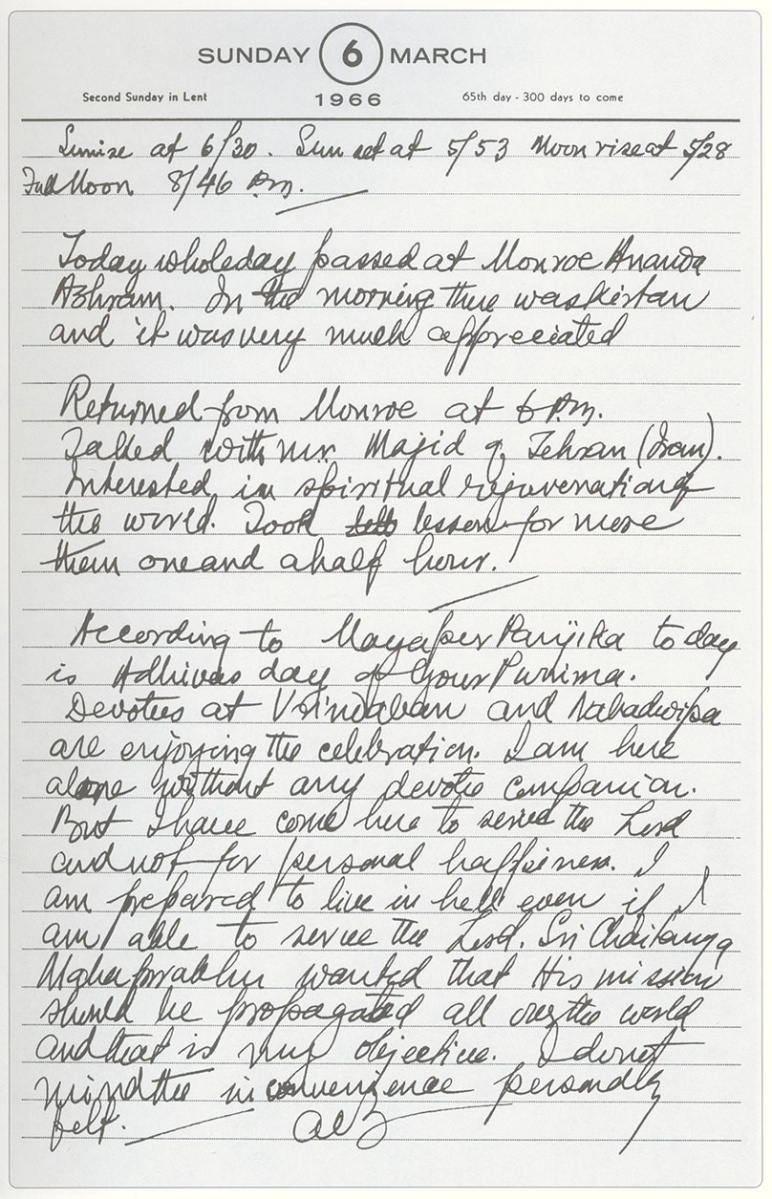 SUNDAY 6 MARCH
Second Sunday in Lent 1966 65th day - 300 days to come
Sunrise at 6/30. Sun set at 5/53 Moon rise at 5/28
Full Moon 8/46 P.m.
Today wholeday passed at Monroe Ananda
Ashram. In the morning there was kirtan
and it was very much appreciated
Returned from Monroe at 6 P.m.
Talked with Mr. Majid of Tehran (Iran).
Interested in spiritual rejuvenation of
the world. Took lesson for more
than one and a half hour.
According to Mayapur Panjika today
is Adhivas day of Gour Purnima.
Devotees at Vrindaban and Nabadwipa
are enjoying the celebration. I am here
alone without any devotee companion.
But I have come here to serve the Lord
and not for personal happiness. I
am prepared to live in hell even if I
am able to serve the Lord. Sri Chaitanya
Mahaprabhu wanted that His mission
should be propagated all over the world
and that is my objective. I do not
mind the inconvenience personally
felt.